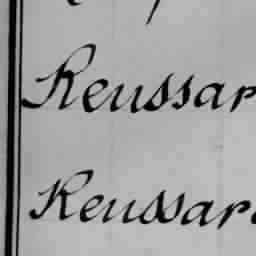 Reussar
Reussar